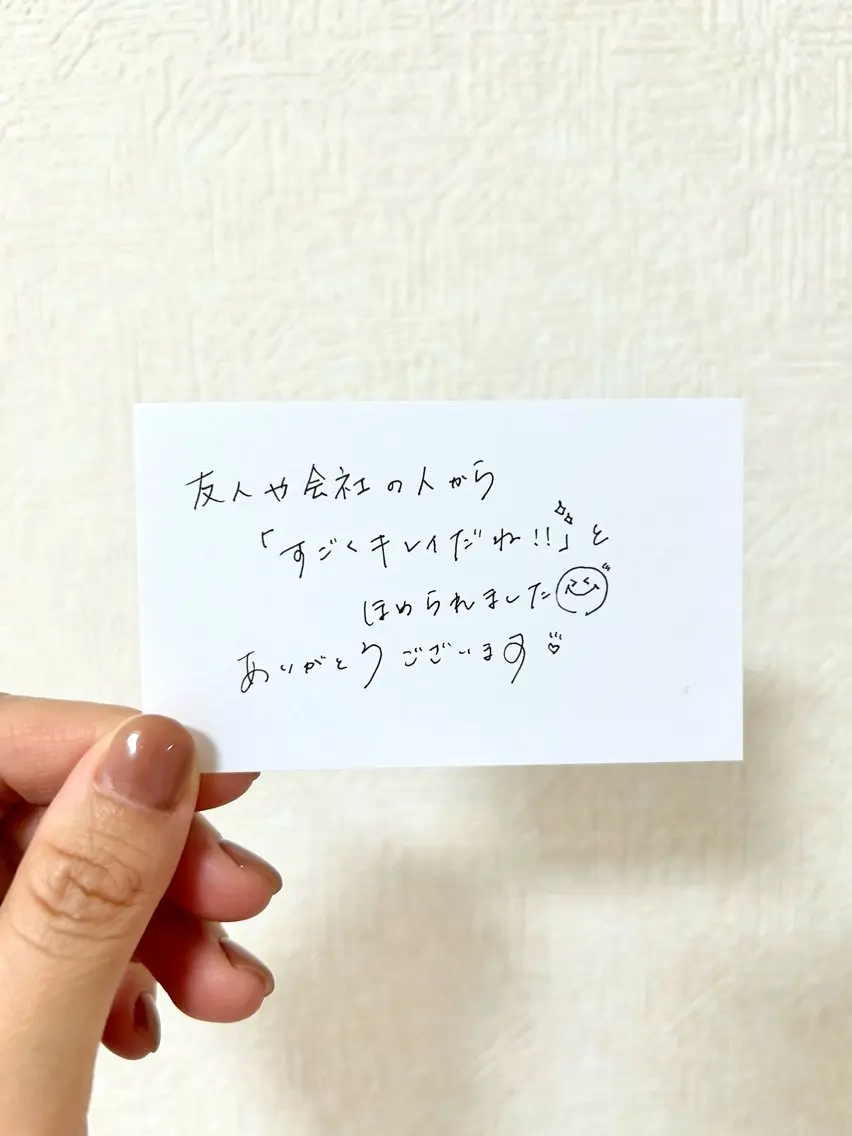 友人や会社の人から
「すごくキレイだね!!」と
ほめられました
ありがとうございます